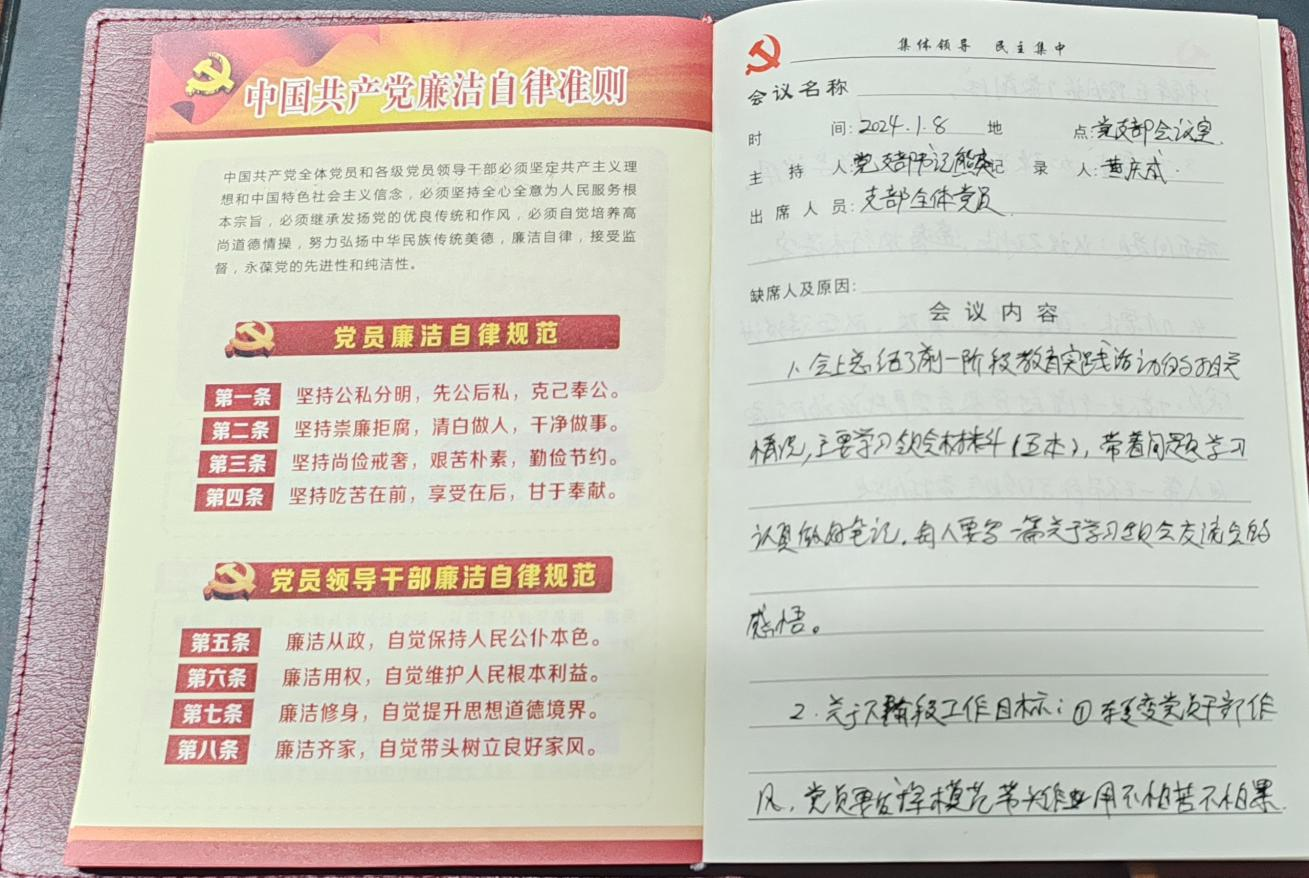 中国共产党廉洁自律准则
中国共产党全体党员和各级党员领导干部必须坚定共产主义理
想和中国特色社会主义信念，必须坚持全心全意为人民服务根
本宗旨，必须继承发扬党的优良传统和作风，必须自觉培养高
尚道德情操，努力弘扬中华民族传统美德，廉洁自律，接受监
督，永葆党的先进性和纯洁性。
党员廉洁自律规范
第一条 坚持公私分明，先公后私，克己奉公。
第二条 坚持崇廉拒腐，清白做人，干净做事。
第三条 坚持尚俭戒奢，艰苦朴素，勤俭节约。
第四条 坚持吃苦在前，享受在后，甘于奉献。
党员领导干部廉洁自律规范
第五条 廉洁从政，自觉保持人民公仆本色。
第六条 廉洁用权，自觉维护人民根本利益。
第七条 廉洁修身，自觉提升思想道德境界。
第八条 廉洁齐家，自觉带头树立良好家风。
集体领导 民主集中
会议名称
时间：2024.1.8 地点：党支部会议室
主持人：党支部书记熊 记录人：黄庆成.
出席人员：支部全体党员
缺席人及原因：
会议内容
1、会上总结了前一阶段教育实践活动的相关
情况，主要学习领会材料（五本），带着问题学习
认真做好笔记，每人要写一篇关于学习领会交流会的
感悟。
2.关于下阶段工作目标：① 转变党员干部作
风，党员要发挥模范带头作用不怕苦不怕累